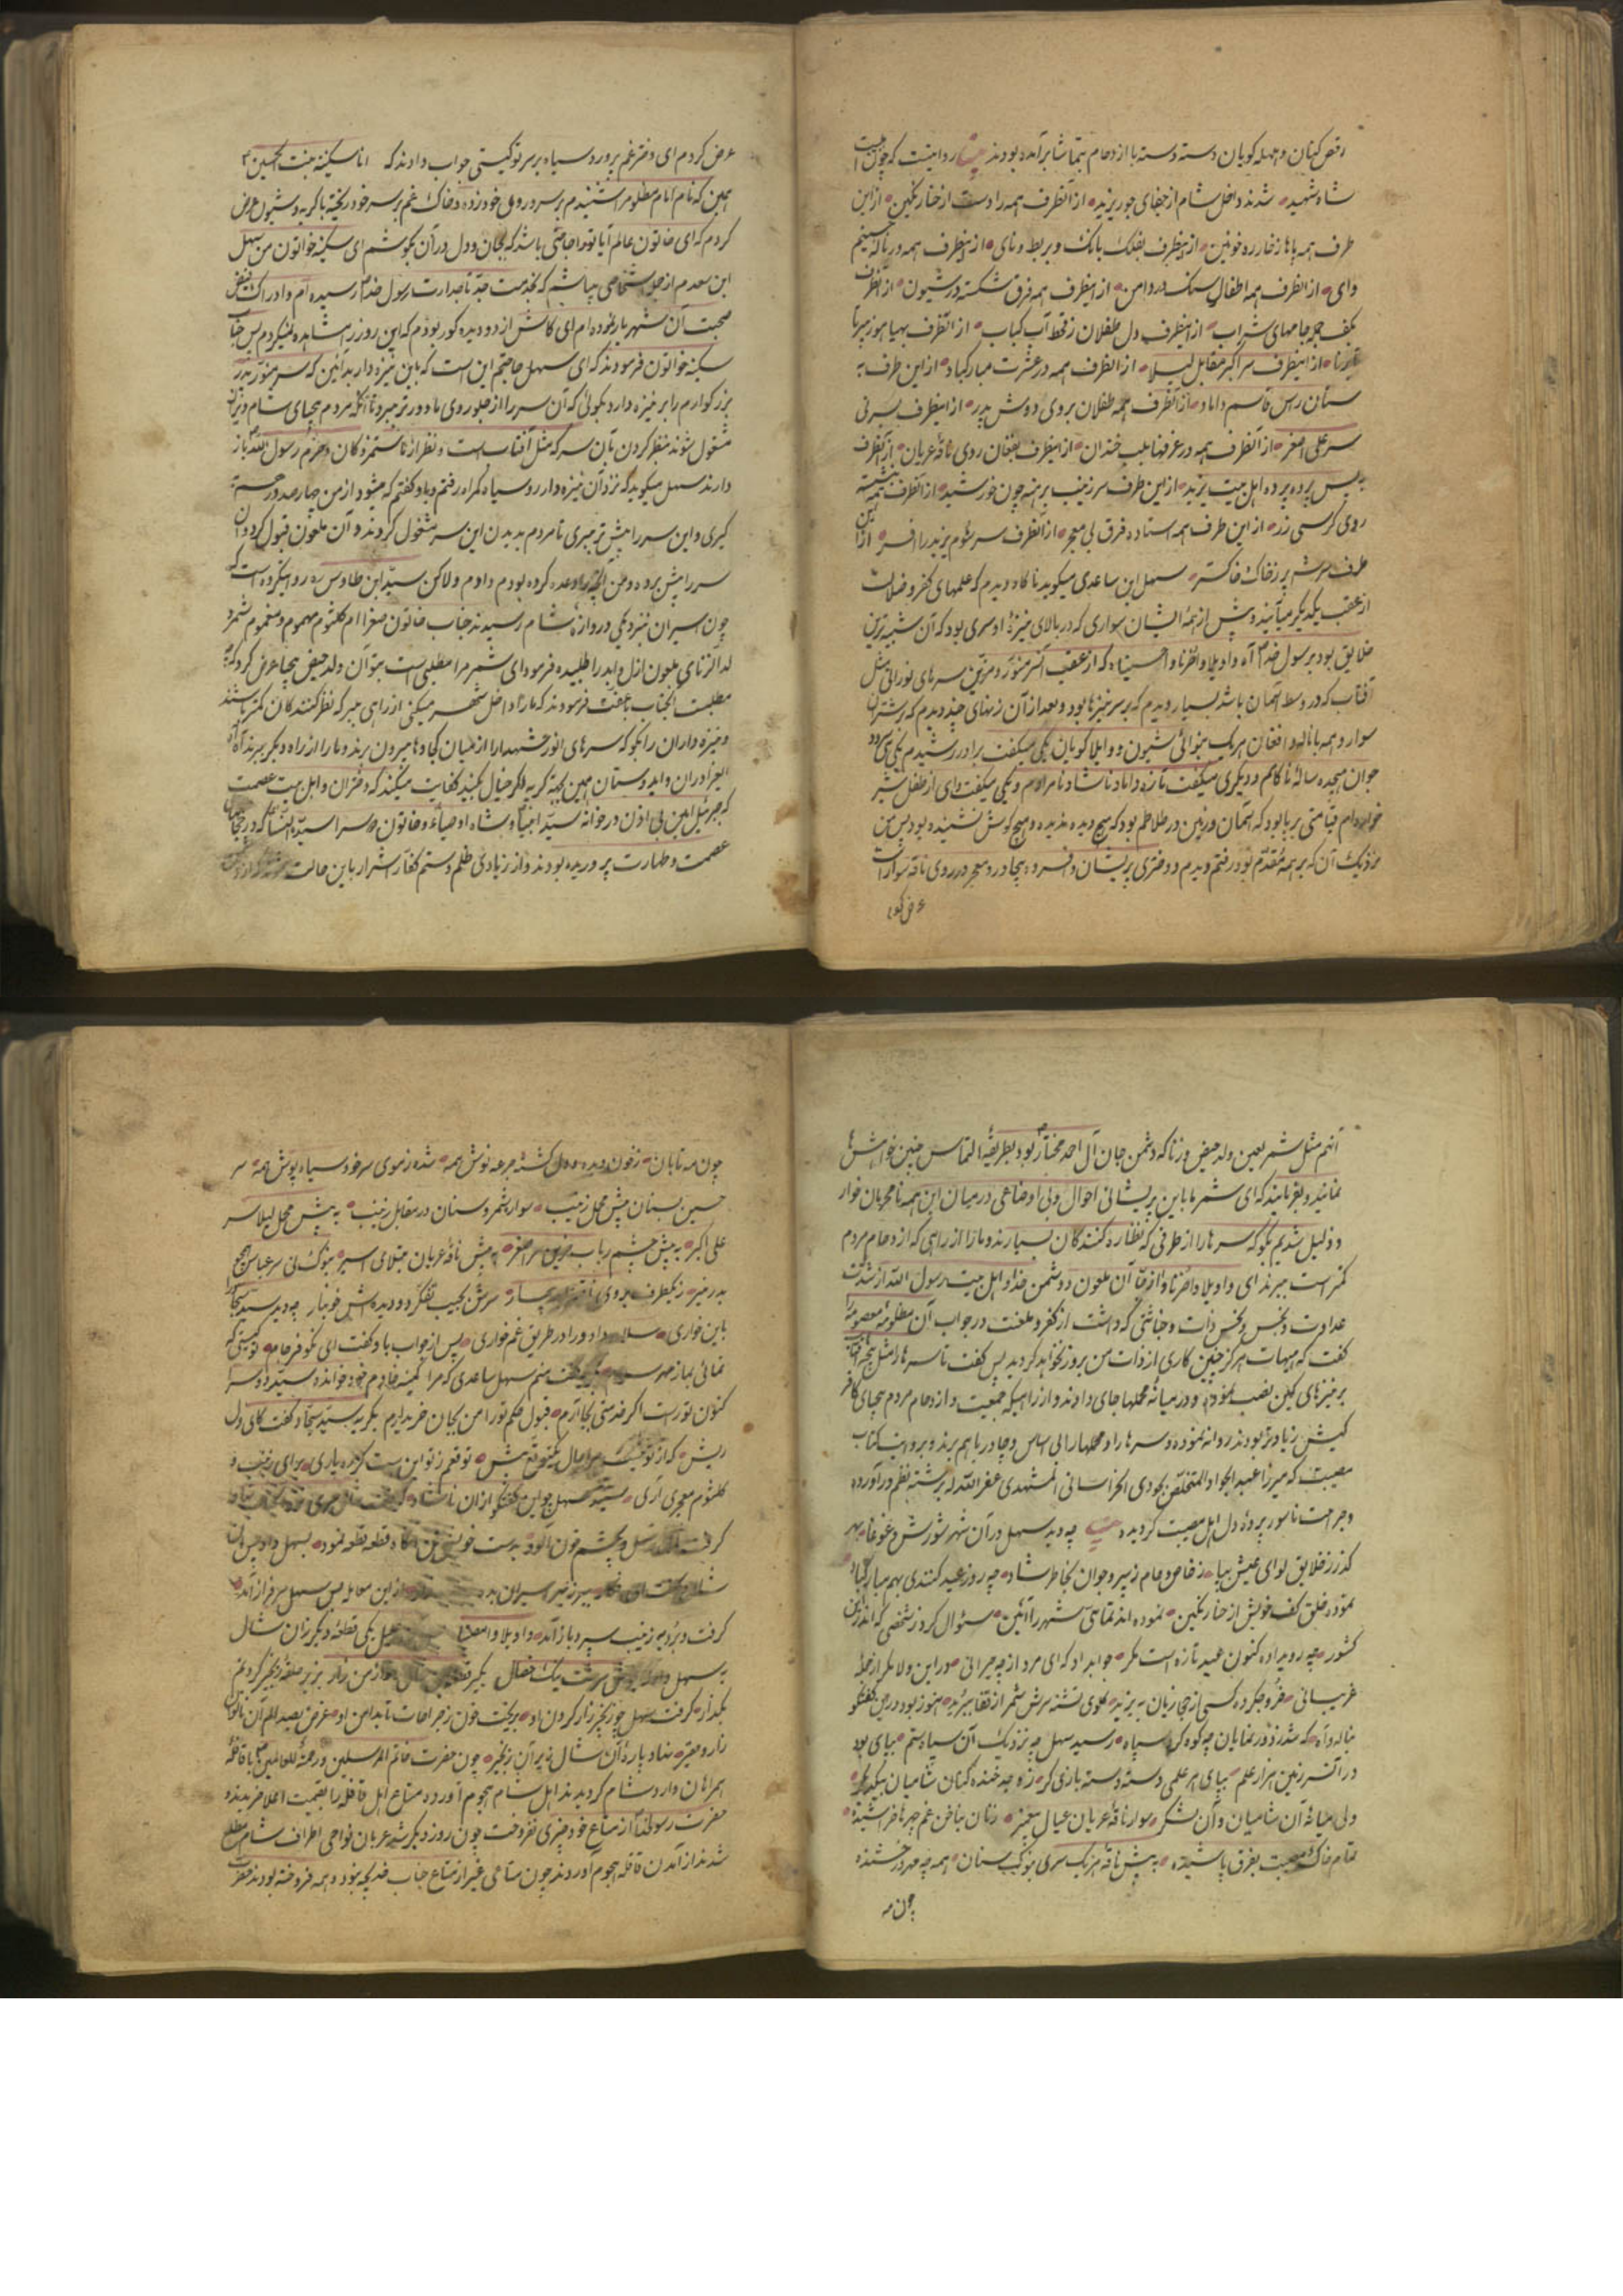 رقص کنان و جهله کویان دسته دسته با ازدحام بتماشا برآمده بودند روایتست که چون اهلبیت
شاه شهید شدند داخل شام از جفای جور یزید از آنطرف همه را دست از حنا رنکین از این
طرف همه پاها ز خار ره خونین از اینطرف بفلک بانک و بربط و نای از اینطرف همه در ناله حسینم
وای از آنطرف همه اطفال سنک در دامن از اینطرف همه فرق شکسته در شیون از آنطرف
بکف جامهای شراب از اینطرف دل طفلان ز قحط آب کباب از آنطرف
از اینطرف سر اکبر مقابل لیلا از آنطرف همه در عشرت مبارکباد از این طرف به
سنان راس قاسم داماد از آنطرف همه طفلان بروی دوش پدر از اینطرف بسر نی
سر علی اصغر از آنطرف همه در غرفها بلب خندان از اینطرف بفغان روی ناقهٔ عریان از آنطرف
پس پرده اهل بیت یزید از این طرف سر زینب برهنه چون خورشید از آنطرف همه نشسته
روی کرسی زر از این طرف همه استاده فرق بی معجر از آنطرف سر شوم یزید را افسر از این
طرف سر پر ز خاک خاکستر سهل ابن ساعدی میکوید ناکاه دیدم که علمهای کفر و ضلالت
از عقب یکدیکر میآیند و پیش از همهٔ ایشان سواری که در بالای نیزهٔ او سری بود که آن شبیه ترین
خلایق بود برسول خدا آه واویلا واحزنا واحسیناه که از عقب آنسر منور و مزین سرهای نورانی مثل
آفتاب که در وسط آسمان باشد بسیار دیدم که بر سر نیزها بود و بعد از آن زنهای چند دیدم که بر شتران
سوار و همه با ناله و افغان هریک بنوائی شیون و واویلا کویان یکی میکفت برادر رشیدم یکی میسرود
جوان هیجده سالهٔ ناکامم و دیکری میکفت تازه داماد ناشاد نامرادم و یکی میکفت وای از طفل شیر
خواره‌ام قیامتی برپا بود که آسمان و زمین در تلاطم بود که هیچ دیده ندیده و هیچ کوش نشنیده بود پس من
نزدیک آن که بر همه مقدم بود رفتم دیدم و دختری پریشان و افسرده بیچادر و معجر در روی ناقه سوار است
عرض کردم
عرض کردم ای دختر غم پرورد سیاه بر سر تو کیستی جواب دادند که انا سکینة بنت الحسین
همین که نام امام مظلومرا شنیدم بر سر و روی خود زده و خاک غم بر سر خود ریخته با کریه و شیون عرض
کردم که ای خاتون عالم آیا تو را حاجتی باشد که بجان و دل در آن بکوشم ای سکینه خواتون من سهل
ابن سعدم از جمله اشخاصی میباشم که بخدمت جد تاجدارت رسول خدا رسیده‌ام و ادراک فیض
صحبت آن شهریار نموده‌ام ای کاش از دو دیده کور بودم که این روز را مشاهده نمیکردم پس جناب
سکینه خواتون فرمودند که ای سهل حاجتم این است که باین نیزه دار بد آئین که سر منور پدر
بزرکوارم را بر نیزه دارد بکوئی که آن سر را از جلو روی ما دورتر میبرد تا آنکه مردم بیحیای شام ویران
مشغول شوند بنظر کردن بآن سر که مثل آفتاب است و نظر از ما ستمزدکان و حرم رسول الله باز
دارند سهل میکوید که نزد آن نیزه دار رو سیاه کمراه رفتم و باو کفتم که میشود از من چهار صد درهم
کیری و این سر را پیش تر ببری تا مردم بدیدن این سر مشغول کردند و آن ملعون قبول کرد و آن
سر را پیش برد و من آنچه را وعده کرده بودم دادم ولاکن سید ابن طاوس ره روایتکرده است که
چون اسیران نزدیکی دروازهٔ شام رسیدند جناب خاتون صغرا ام کلثوم مهموم و مغموم شمر
ولدالزنای ملعون ازل و ابد را طلبیده فرمود ای شمر مرا مطلبی است بتو آن ولد حیض بیحیا عرض کرد که چه
مطلبست آنجناب بعفت فرمودند که ما را داخل شهر میکنی از راهی ببر که نظر کنندکان کمتر باشند
و نیزه داران را بکو که سرهای انور شهدا را از میان کجاوها بیرون برند و ما را از راه دیکر ببرند آه آه
ای عزاداران و ای دوستان همین بجهة کریه اکر خیال کنید کفایت میکند که دختران و اهل بیت عصمت
که جبرئیل امین بی اذن در خانه سید انبیا و شاه اوصیاء و خاتون دو سرا سیدة النساء که در حجاب
عصمت و طهارت پرورده بودند و از زیادی ظلم و ستم کفار اشرار باین حالت
آنهم مثل شمر لعین ولد حیض و زنا که دشمن جان آل احمد مختار بود بطریقهٔ التماس چنین خواهش‌ها
نمایند و بفرمایند که ای شمر ما باین پریشانی احوال و بی اوضاعی در میان این همه نامحرمان خوار
و ذلیل شدیم بکو که سرها را از طرفی که نظاره کنندکان بسیارند و ما را از راهی که ازدحام مردم
کمتر است ببرند ای واویلا واحزنا و از قضا آن ملعون دشمن خدا و اهل بیت رسول الله از شدت
عداوت و نجس و نحس ذات و خباثتی که داشت از کفر و ملعنت در جواب آن مظلومه معصومه را
کفت که هیهات هرکز چنین کاری از ذات من بروز نخواهد کردید پس کفت تا سرها را مثل
بر نیزهای کین نصب نموده و در میانهٔ محملها جای دادند و از راهیکه جمعیت و ازدحام مردم بیحیای کافر
کیش زیادتر بودند روانه نموده و سرها را و محملها را بی اساس و چادر با هم برند و بروایت کتاب
مصیبت که میرزا عبد الجواد المتخلص بجودی الخراسانی المشهدی غفر الله له برشته نظم در آورده
و جراحت ناسور بر دل اهل مصیبت کردیده چه دید سهل در آن شهر شورش و غوغا بهر
کذر ز خلایق لوای عیش بپا ز خاص و عام ز پیر و جوان بخاطر شاد چه روز عید کنندی بهم مبارکباد
نموده خلق کف خویش از حنا رنکین نموده‌اند تماشی شهر را آئین سئوال کرد ز شخصی که اندرین
کشور چه رویداده کنون عید تازه است مکر جوابداد که ای مرد از چه حیرانی مو راین ولا مکر از جمله
غریبانی خروجکرده کسی از حجازیان به یزید کلوی تشنه سرش شمر از قفا ببرید هنوز بود در این کفتکو
بناله و آه که شد ز دور نمایان چه کوه کرد سپاه رسید سهل چه نزدیک آن سپاه ستم بپای بود
در آنسرزمین هزار علم بپای هر علمی دسته دسته بازی کر زده چه خنده کنان شامیان بیکدیکر
ولی میانهٔ آن شامیان و آن لشکر سوار ناقهٔ عریان عیال پیغمبر زنان بناخن غم چهرها خراشیده
تمام خاک مصیبت بفرق پاشیده به پیش ناقهٔ هر یک سری بنوک سنان همه چه مهر درخشنده
چون مه
چون مه تابان ز خون دیده و دل کشته جرعه نوش همه شده ز موی سر خود سیاه پوش همه سر
حسین بسنان پیش محمل زینب سوار شمر و سنان در مقابل زینب به پیش محمل لیلا سر
علی اکبر به پیش چشم رباب حزین سر اصغر به پیش ناقهٔ عریان مبتلای اسیر بنوک نی سر عباس
بدر منیر ز یکطرف بروی سرش بجیب تفکر دو دیده‌اش خونبار چه دید سید سجاد را
باین خواری سلام داد و را در طریق غم خواری پس از جواب باو کفت ای نکو فرجام تو کیستی که
نمائی بما ز مهر سلام بکفت منم سهل ساعدی که مرا کمینه خادم خود خوانده سید دو سرا
کنون تو راست اکر خدمتی بجا آرم قبول حکم تو را من بجان خریدارم بکریه سید سجاد کفت کای دل
ریش که از تو نیست مرا حال یکتوقع بیش توقعم ز تو این است کر کنی یاری برای زینب و
کلثوم معجری آری سهل چو این کفتکو از آن ناشاد
کرفت بچشم خون آلود بدست خویشتن آنکاه قطعه قطعه نمود بسهل داد پس آن
شال از این معامله پس سهل سرفراز آمد
کرفت و برد به زینب سپرد باز آمد واویلا وامصیبتا یکی قطعهٔ دیکر ز آن شال
به سهل داد
بکذار کرفت سهل چو زنجیر را ز کردن او بریخت خون ز جراحات تا بدامن او غرض بصد الم آن ناتوان
زار و حقیر نهاد پارهٔ آن شال زیر آن زنجیر چون حضرت خاتم المرسلین و رحمة للعالمین با قافله
همراهان وارد شام کردیدند اهل شام هجوم آورده متاع اهل قافله را بقیمت اعلا خریدند و
حضرت رسولخدا از متاع خود چیزی نفروخت چون روز دیکر شد عربان نواحی اطراف شام مطلع
شدند از آمدن قافله هجوم آوردند چون متاعی غیر از متاع جناب خدیجه نبود و همه فروخته بودند حضرت